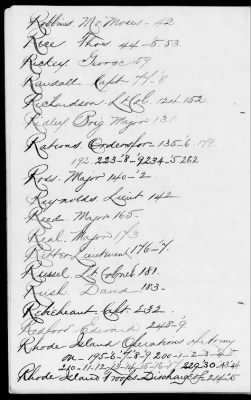 Robbins Mr. Moses - 42
Rice Thos 44-5.53
Richey George 59
Randall Capt 77-8
Richardson Lt Col. 124.152
Brig Major 131.
Rations Orders for 135-6 179
192 223-8-9 234-5 262
Ross. Major 140-'2
Reynolds Lieut 142
Reed Major 165-
Major 173
Ritter Lieutenant 176-7.
Russel Lt Colonel 181
Rush David 183-
Capt 232.
Edward 248-9.
Rhode Island Operations of Army
on - 195-6-7-8-9 200-1-2-3-4-5
210-11-12-13-14-15-16-17
Rhode Island Troops Discharge of